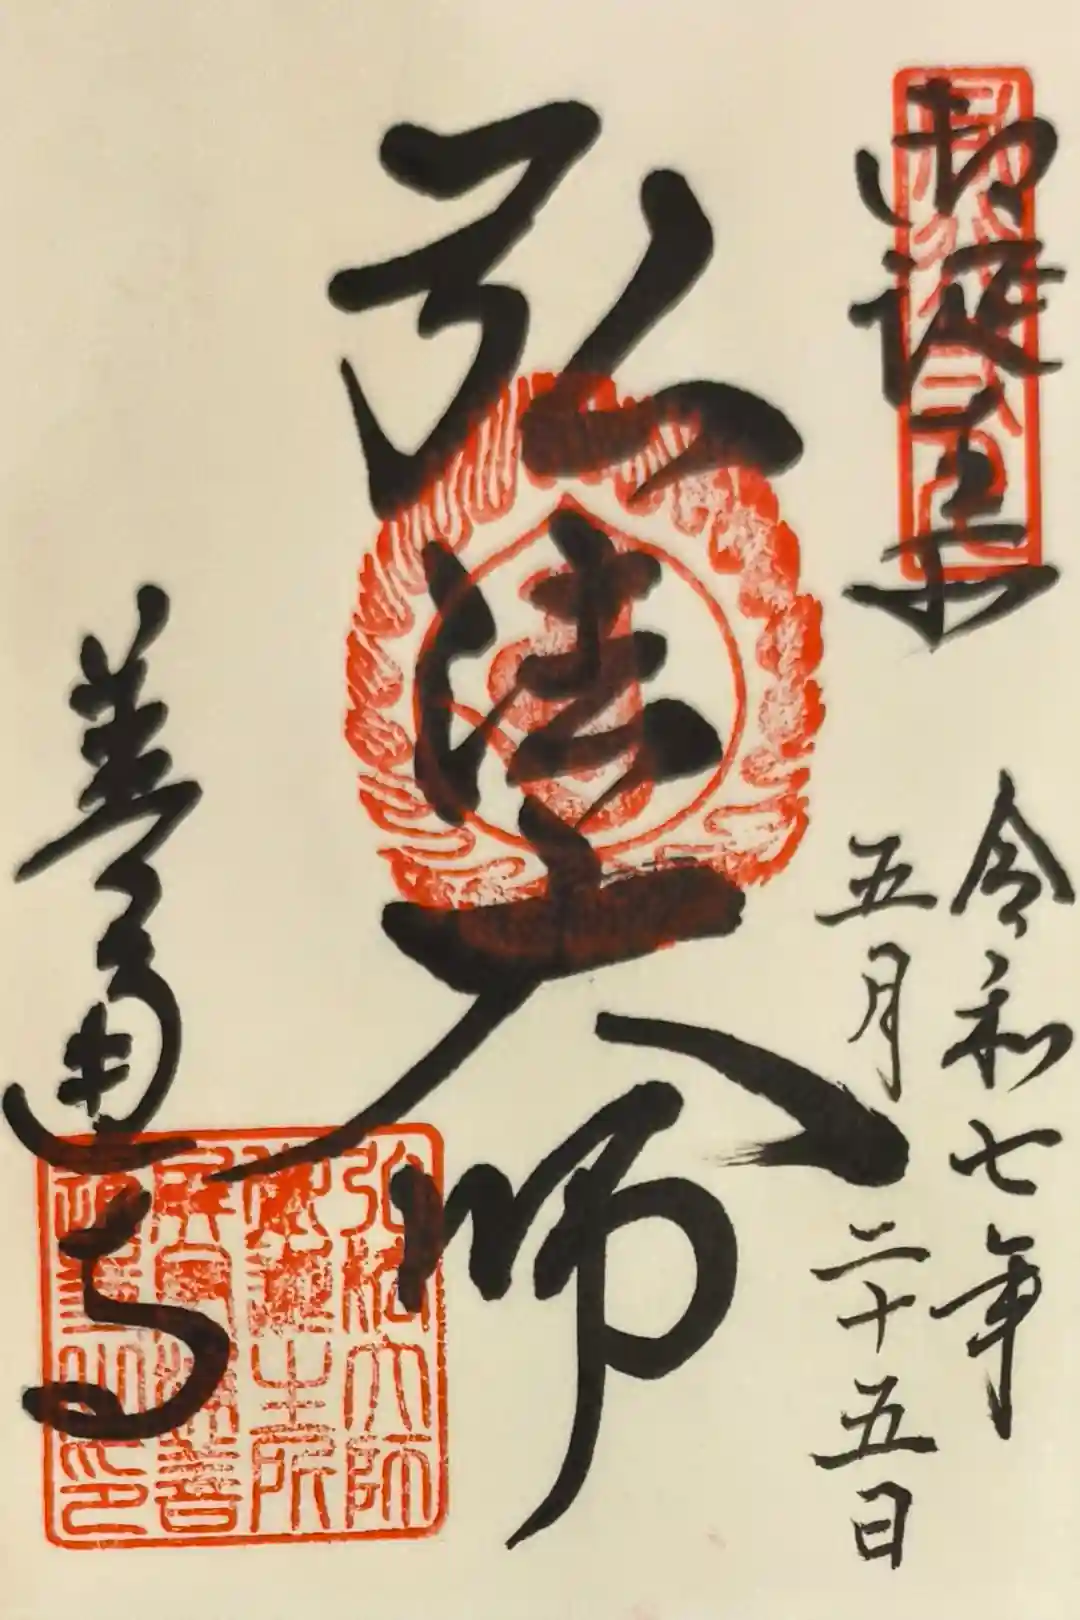 御誕生所
令和七年
五月二十五日
弘法大師
善通寺
弘法大師
御誕生所
屏風浦善
之印